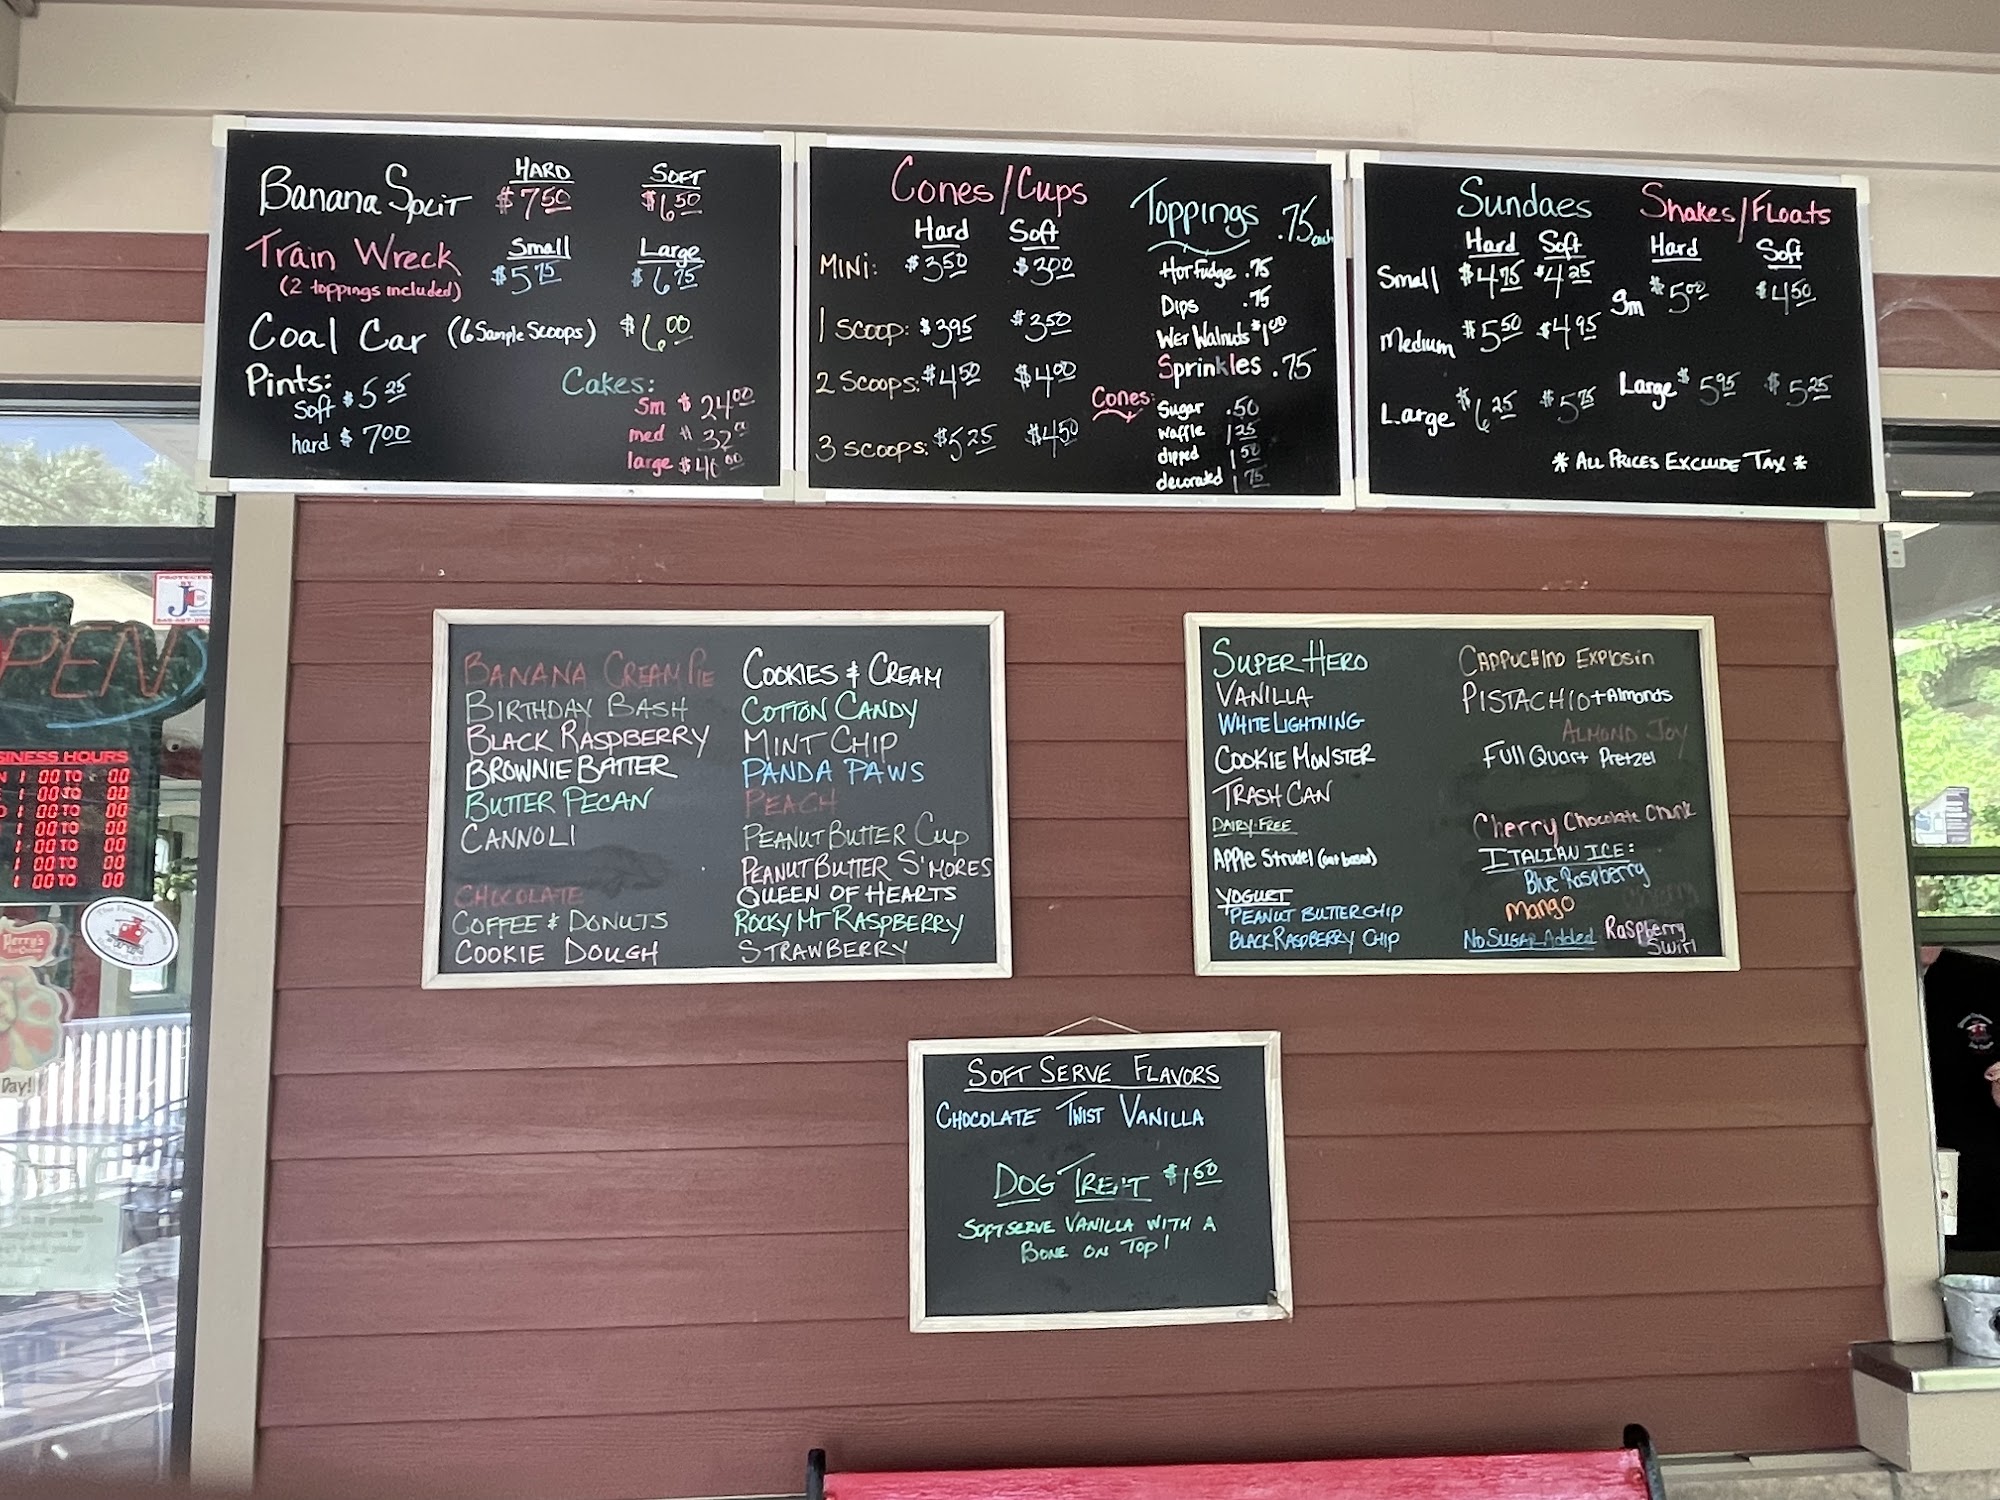 HARD SOFT
Banana Split $7.50 $6.50
Train Wreck Small Large
(2 toppings included) $5.75 $6.75
Coal Car (6 Sample Scoops) $6.00
Pints:
Soft $5.25
hard $7.00
Cakes:
Sm $24.00
med $32.00
large $40.00
Cones/Cups
Hard Soft
MINI: $3.50 $3.00
1 SCOOP: $3.95 $3.50
2 SCOOPS: $4.50 $4.00
3 SCOOPS: $5.25 $4.50
Toppings .75 each
Hot Fudge .75
Dips .75
Wet Walnuts $1.00
Sprinkles .75
Cones:
Sugar .50
Waffle 1.25
dipped 1.50
decorated 1.75
Sundaes
Hard Soft
Small $4.75 $4.25
Medium $5.50 $4.95
Large $6.25 $5.75
Shakes/Floats
Hard Soft
Sm $5.00 $4.50
Large $5.95 $5.25
* ALL PRICES EXCLUDE TAX *
BANANA CREAM PIE
BIRTHDAY BASH
BLACK RASPBERRY
BROWNIE BATTER
BUTTER PECAN
CANNOLI
CHOCOLATE
COFFEE & DONUTS
COOKIE DOUGH
COOKIES & CREAM
COTTON CANDY
MINT CHIP
PANDA PAWS
PEACH
PEANUT BUTTER CUP
PEANUT BUTTER S'MORES
QUEEN OF HEARTS
ROCKY MT RASPBERRY
STRAWBERRY
SUPER HERO
VANILLA
WHITE LIGHTNING
COOKIE MONSTER
TRASH CAN
DAIRY-FREE
Apple Strudel (oat based)
YOGURT
PEANUT BUTTER CHIP
BLACK RASPBERRY CHIP
CAPPUCHINO EXPLOSIN
PISTACHIO + Almonds
ALMOND JOY
Full Quart Pretzel
Cherry Chocolate Chunk
ITALIAN ICE:
Blue Raspberry
Cherry
Mango
No SUGAR Added Raspberry
Swirl
SOFT SERVE FLAVORS
CHOCOLATE TWIST VANILLA
DOG TREAT $1.50
SOFTSERVE VANILLA WITH A
BONE ON TOP!
PROTECTED
BY
PEN
SINESS HOURS
1 00 TO 00
1 00 TO 00
1 00 TO 00
1 00 TO 00
1 00 TO 00
1 00 TO 00
1 00 TO 00
Perry's
Day!